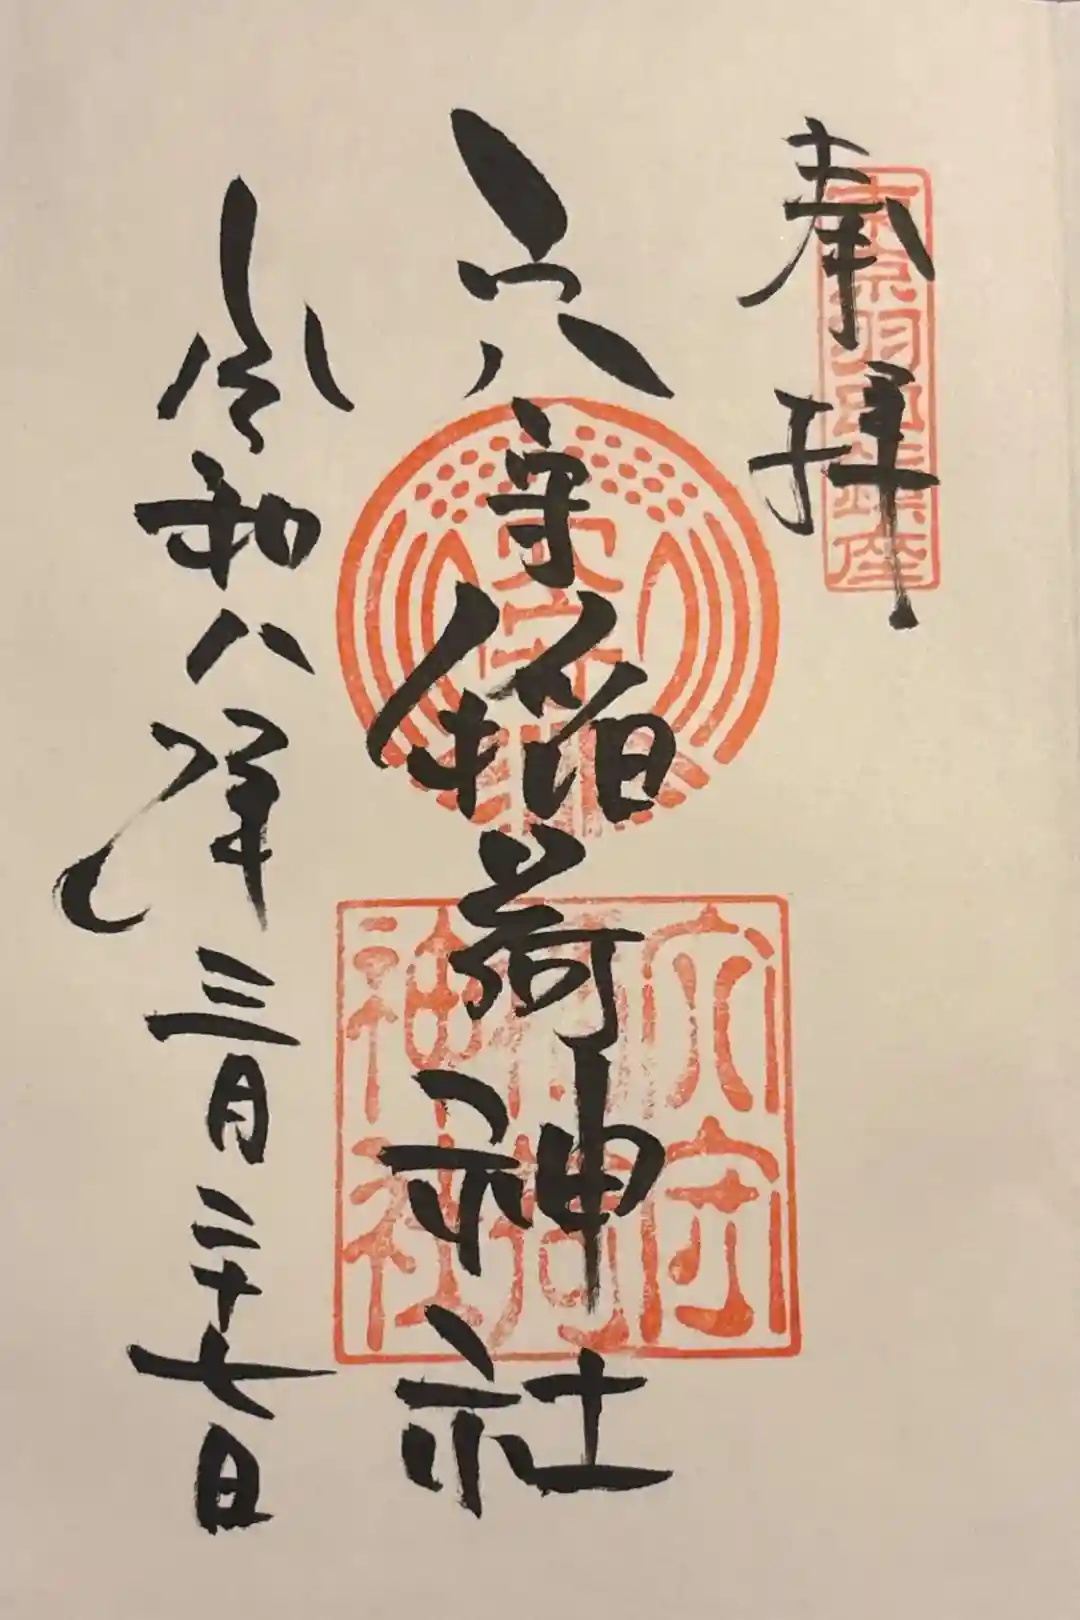 奉拝
東京羽田鎮座
穴守稲荷神社
穴守
穴守稲荷神社
令和八年三月二十七日